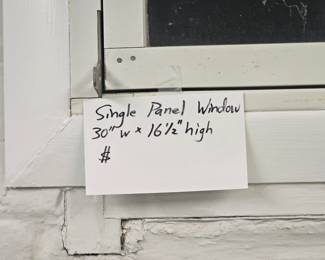 Single Panel Window
30" w x 16 1/2" high
$